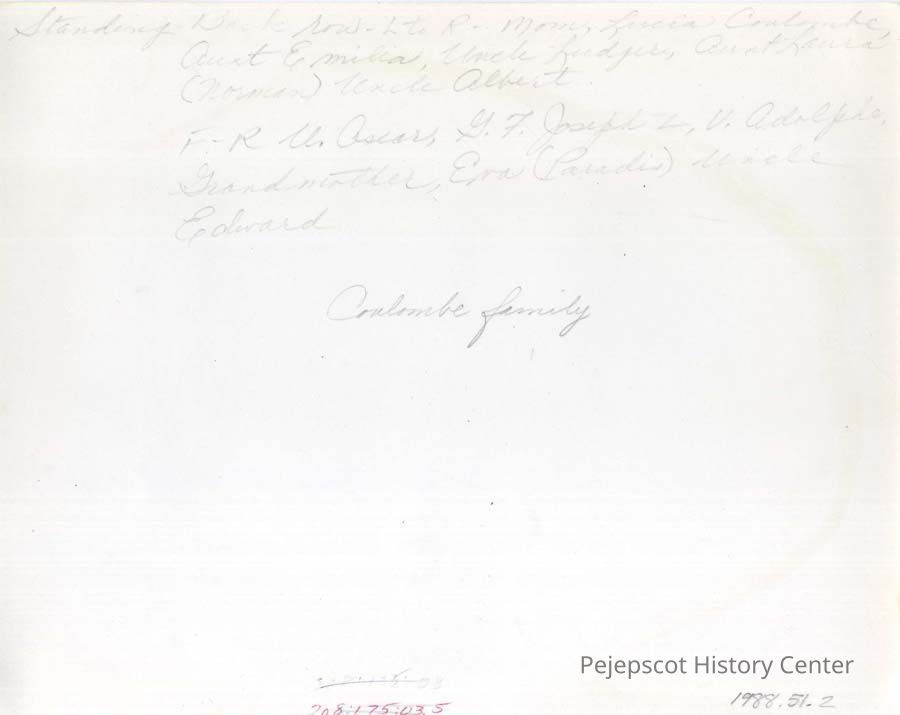 Standing Back row - L to R - Mom, Lucia Coulombe,
Aunt Emilia, Uncle Ludger, Aunt Laura
(Norman) Uncle Albert.
F-R U. Oscar, G.F. Joseph L, U. Adolphe,
Grandmother, Eva (Paradis) Uncle
Edward
Coulombe family
Pejepscot History Center
1988.51.2
208.175.03.5